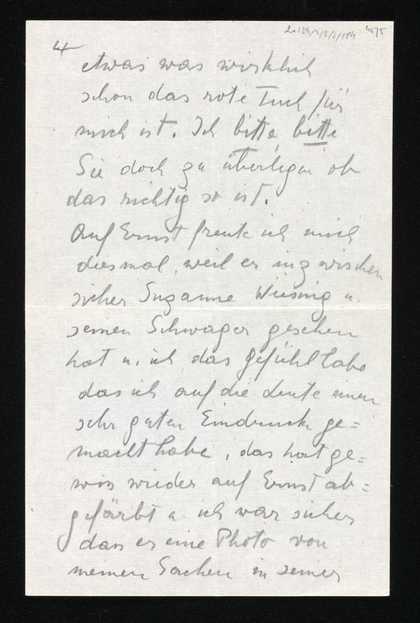 4
etwas was wirklich
schon das rote Tuch für
mich ist. Ich bitte bitte
Sie doch zu überlegen ob
das richtig so ist.
Auf Ernst freute ich mich
diesmal, weil er inzwischen
sicher Suzanne u.
seinen Schwager gesehen
hat u. ich das Gefühl habe
das ich auf die Leute einen
sehr guten Eindruck ge=
macht habe, das hat ge=
wiss wieder auf Ernst ab=
gefärbt u. ich war sicher
dass er eine Photo von
meinen Sachen in seiner